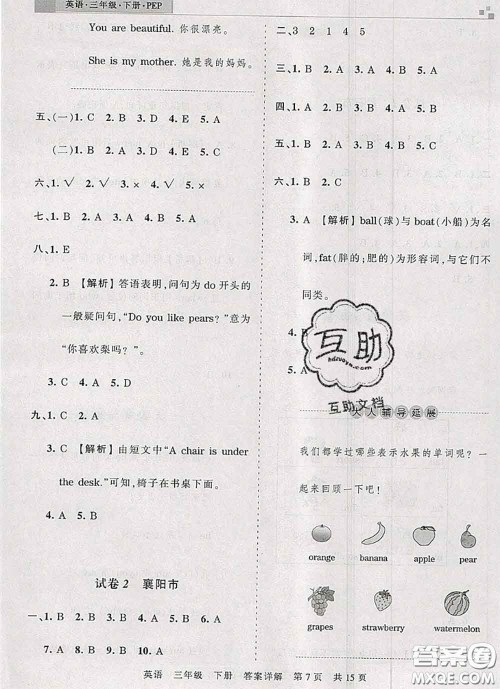 英语·三年级·下册·PEP
You are beautiful. 你很漂亮。
She is my mother. 她是我的妈妈。
五、(一)1. C 2. B 3. D 4. E 5. A
(二)1. B 2. A 3. D 4. C 5. E
六、1. √ 2. √ 3. × 4. √ 5. ×
七、1. B 2. A 3. A 4. A 5. B
八、1. E
2. B 【解析】答语表明，问句为 do 开头的
一般疑问句，“Do you like pears?”意为
“你喜欢梨吗？”
3. C 4. D 5. A
九、1. C 2. A
3. C 【解析】由短文中“A chair is under
the desk.”可知，椅子在书桌下面。
4. A 5. B
试卷 2 襄阳市
一、1. B 2. B 3. A 4. A 5. B 6. A
7. B 8. B 9. A 10. A
二、3 2 1 4 5
三、1. B 2. A 3. B 4. A 5. B 6. A
7. A 8. B
四、1. A 2. B 3. B 4. A 5. B
五、1. C 2. B 3. D 4. A 5. E
六、1. B 2. C
3. A 【解析】ball(球)与 boat(小船)为名
词，fat(胖的；肥的)为形容词，与它们不
同类。
4. B
5. A
互助
hdzuoye.com
互助文档
人人辅导延展
我们都学过哪些表示水果的单词呢？一
起来回顾一下吧！
orange banana apple pear
grapes strawberry watermelon
英语 三年级 下册 答案详解 第 7 页 共 15 页
答案圈
MXQE.COM